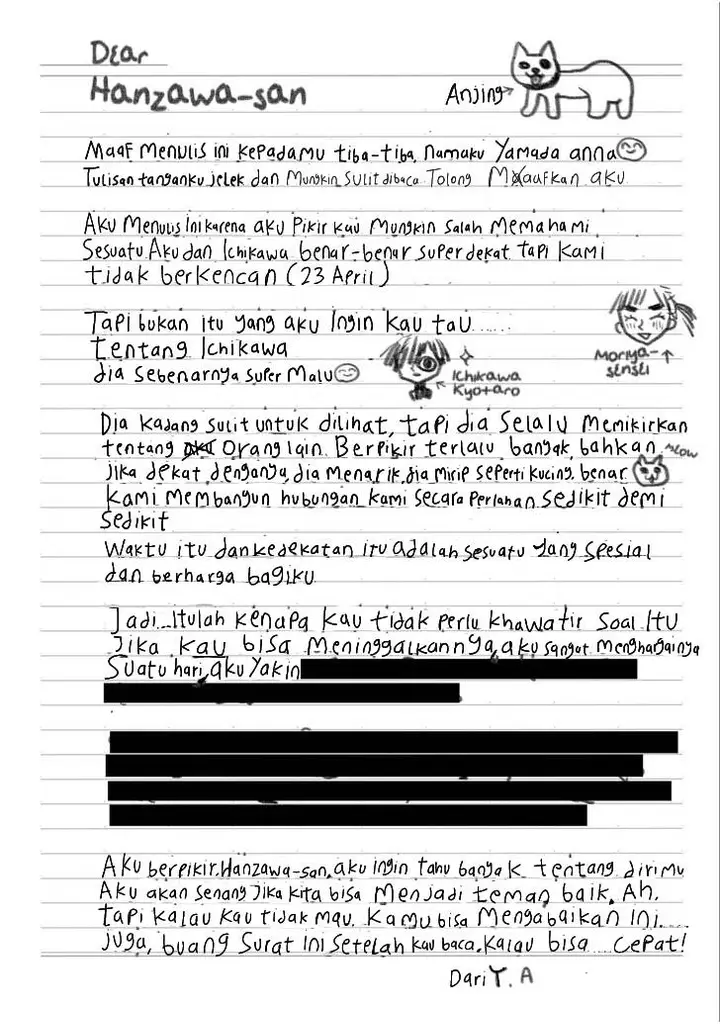 Dear
Hanzawa-san
Anjing
Maaf Menulis ini kepadamu tiba-tiba, namaku Yamada anna
Tulisan tanganku jelek dan Mungkin sulit dibaca Tolong Maafkan aku
Aku Menulis Ini karena aku Pikir kau Mungkin Salah Memahami
Sesuatu Aku dan Ichikawa benar-benar super dekat tapi kami
tidak berkencan (23 April)
Tapi bukan itu yang aku Ingin kau tau......
tentang Ichikawa
dia sebenarnya super Malu
Ichikawa
Kyotaro
Moriya-
sensei
Dia kadang sulit untuk dilihat, tapi dia Selalu Memikirkan
tentang Orang lain. Berpikir terlalu banyak, bahkan
Meow
jika dekat denganya, dia Menarik, dia Mirip seperti kucing. benar
Kami Membangun hubungan kami secara perlahan sedikit demi
Sedikit
Waktu itu dan kedekatan itu adalah sesuatu yang spesial
dan berharga bagiku
Jadi...Itulah kenapa kau tidak perlu khawatir Soal Itu
Jika kau bisa Meninggalkannya, aku sangat menghargainya
Suatu hari, aku Yakin
Aku berpikir, Hanzawa-san, aku ingin tahu banyak tentang dirimu
Aku akan senang jika kita bisa Menjadi teman baik, Ah,
tapi kalau kau tidak mau, Kamu bisa Mengabaikan Ini.....
Juga, buang Surat ini Setelah kau baca, Kalau bisa .... Cepat!
Dari Y. A